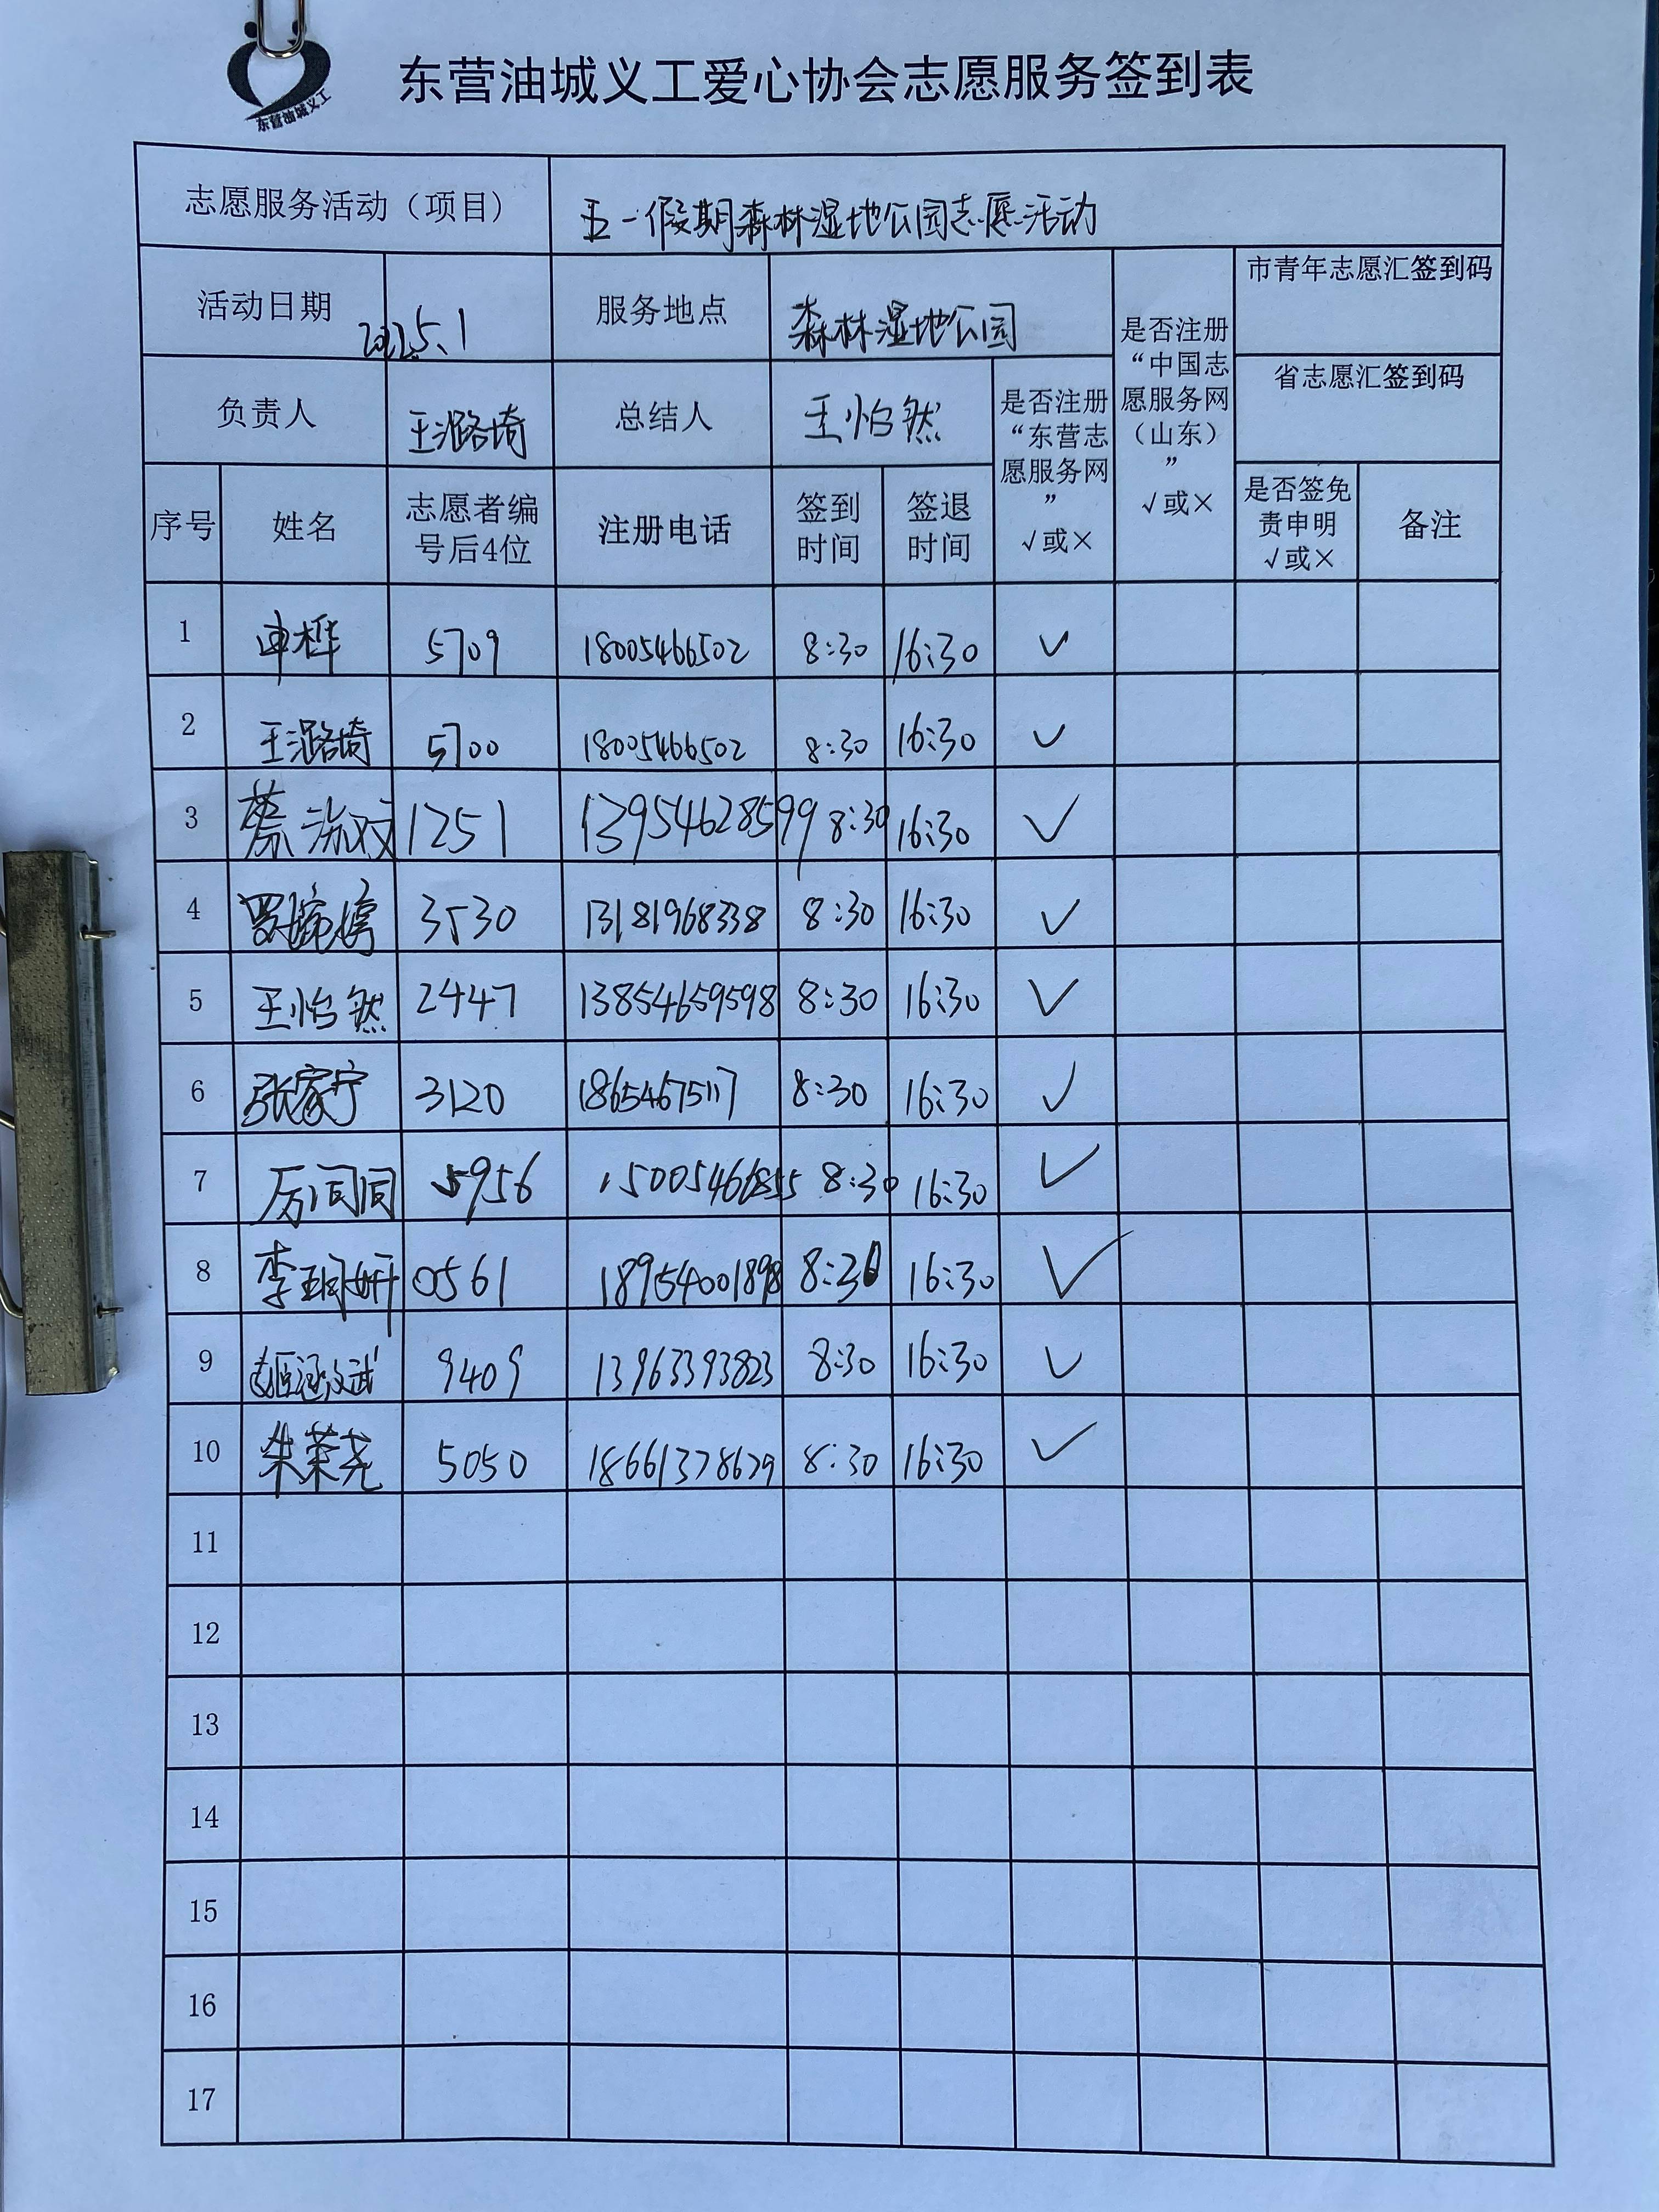 东营油城义工
东营油城义工爱心协会志愿服务签到表
志愿服务活动（项目） 五一假期森林湿地公园志愿活动
活动日期 服务地点 森林湿地公园 是否注册“中国志愿服务网（山东）”√或× 市青年志愿汇签到码
省志愿汇签到码
负责人 王潞琦 总结人 王怡然 是否注册“东营志愿服务网”√或×
序号 姓名 志愿者编号后4位 注册电话 签到时间 签退时间 是否签免责申明√或× 备注
1 申桦 5709 18005466502 8:30 16:30 ✓
2 王潞琦 5700 18005466502 8:30 16:30 ✓
3 蔡 1251 13954628599 8:30 16:30 ✓
4 3530 13181968338 8:30 16:30 ✓
5 王怡然 2447 13854659598 8:30 16:30 ✓
6 张家宁 3120 18654675117 8:30 16:30 ✓
7 厉闫闫 5956 15005466855 8:30 16:30 ✓
8 李玥妍 0561 18954001898 8:30 16:30 ✓
9 9409 13963393823 8:30 16:30 ✓
10 朱荣尧 5050 18661378629 8:30 16:30 ✓
11
12
13
14
15
16
17